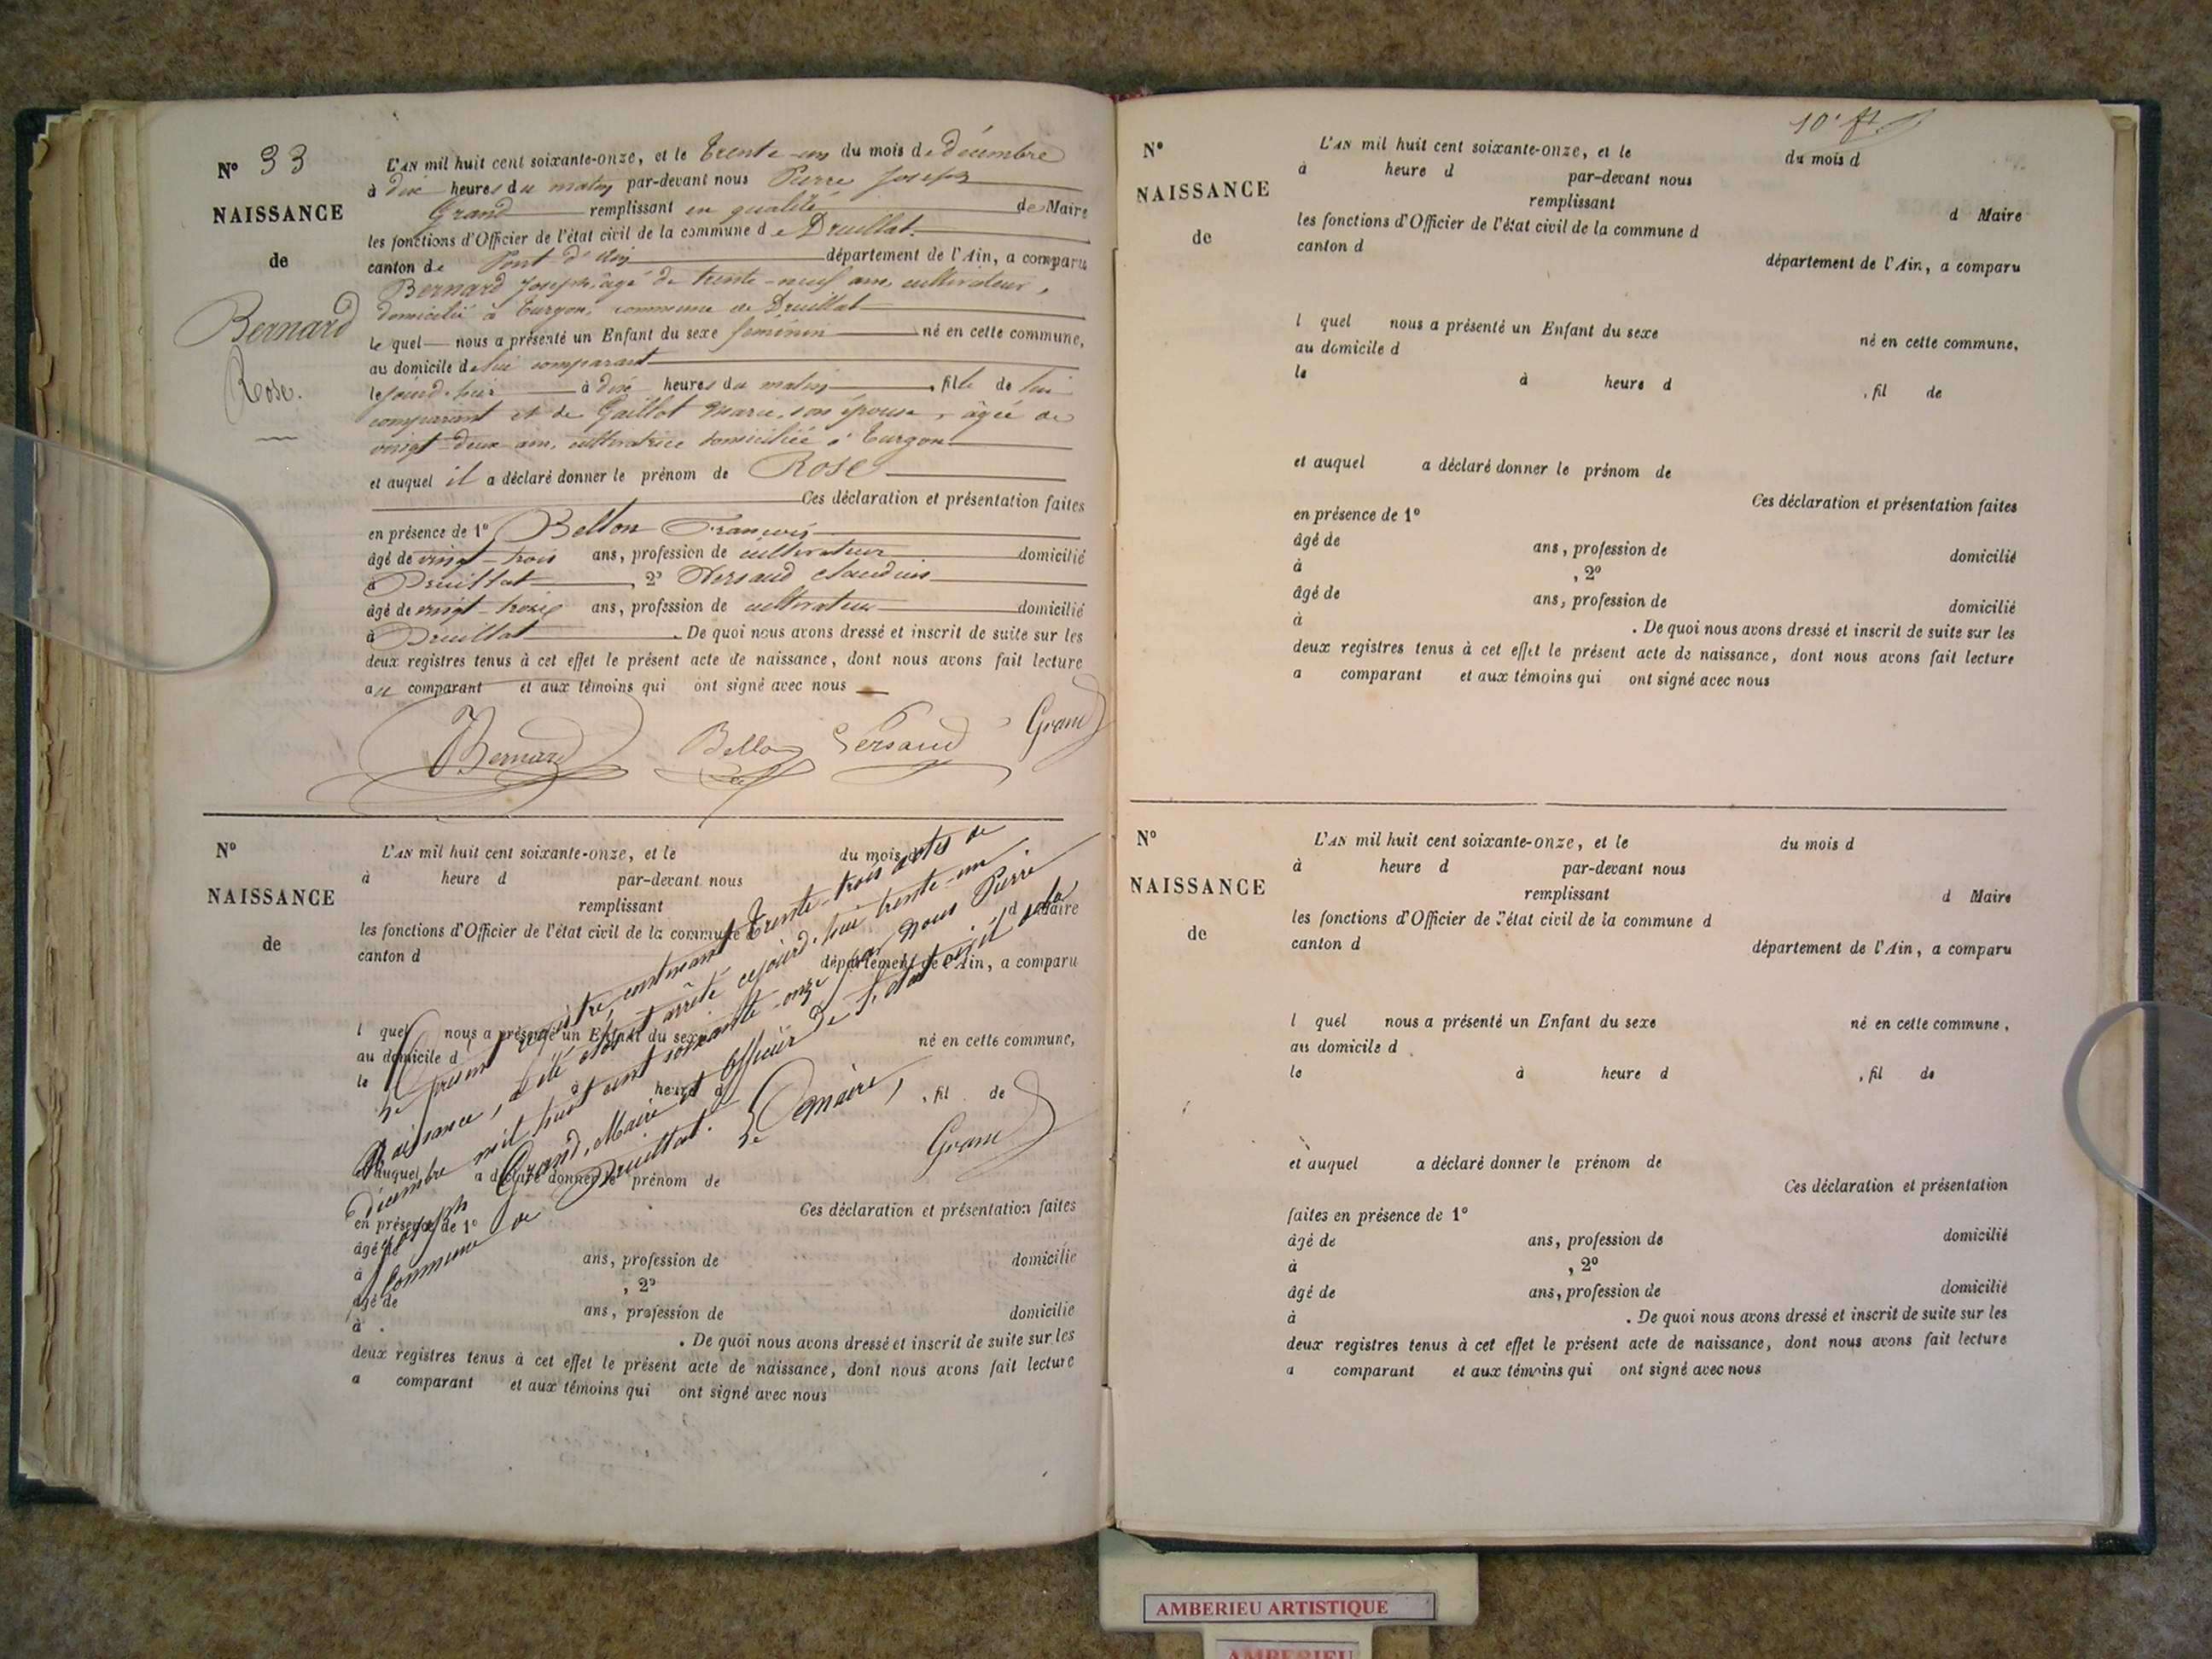 N° 33
NAISSANCE
de
Bernard
Rose.
L'AN mil huit cent soixante-onze, et le trente-un du mois de décembre
à dix heures du matin par-devant nous Pierre Joseph
Grand remplissant en qualité de Maire
les fonctions d'Officier de l'état civil de la commune de Druillat.
canton de Pont d'Ain département de l'Ain, a comparu
Bernard Joseph, âgé de trente-neuf ans, cultivateur,
domicilié à Turgon, commune de Druillat
lequel nous a présenté un Enfant du sexe féminin né en cette commune,
au domicile de lui comparant
le jourd'hui à dix heures du matin, fille de lui
comparant et de Gaillot Marie, son épouse, âgée de
vingt-deux ans, cultivatrice domiciliée à Turgon
et auquel il a déclaré donner le prénom de Rose
Ces déclaration et présentation faites
en présence de 1° Bellon François
âgé de vingt-trois ans, profession de cultivateur domicilié
à Druillat, 2° Versaud Claudius
âgé de vingt-trois ans, profession de cultivateur domicilié
à Druillat. De quoi nous avons dressé et inscrit de suite sur les
deux registres tenus à cet effet le présent acte de naissance, dont nous avons fait lecture
au comparant et aux témoins qui ont signé avec nous
Bernard Bellon Versaud Grand
N°
NAISSANCE
de
L'AN mil huit cent soixante-onze, et le du mois d
à heure d par-devant nous
remplissant d Maire
les fonctions d'Officier de l'état civil de la commune d
canton d département de l'Ain, a comparu
l quel nous a présenté un Enfant du sexe né en cette commune,
au domicile d
le à heure d , fil de
et auquel a déclaré donner le prénom de
Ces déclaration et présentation faites
en présence de 1°
âgé de ans, profession de domicilié
à , 2°
âgé de ans, profession de domicilié
à . De quoi nous avons dressé et inscrit de suite sur les
deux registres tenus à cet effet le présent acte de naissance, dont nous avons fait lecture
a comparant et aux témoins qui ont signé avec nous
Le présent registre, contenant trente-trois actes de
Naissance, a été clos et arrêté cejourd'hui trente-un
décembre mil huit cent soixante-onze par nous Pierre
Joseph Grand, Maire et Officier de l'état civil de la
Commune de Druillat.
Le Maire,
Grand
10e ft
N°
NAISSANCE
de
L'AN mil huit cent soixante-onze, et le du mois d
à heure d par-devant nous
remplissant d Maire
les fonctions d'Officier de l'état civil de la commune d
canton d département de l'Ain, a comparu
l quel nous a présenté un Enfant du sexe né en cette commune,
au domicile d
le à heure d , fil de
et auquel a déclaré donner le prénom de
Ces déclaration et présentation faites
en présence de 1°
âgé de ans, profession de domicilié
à , 2°
âgé de ans, profession de domicilié
à . De quoi nous avons dressé et inscrit de suite sur les
deux registres tenus à cet effet le présent acte de naissance, dont nous avons fait lecture
a comparant et aux témoins qui ont signé avec nous
N°
NAISSANCE
de
L'AN mil huit cent soixante-onze, et le du mois d
à heure d par-devant nous
remplissant d Maire
les fonctions d'Officier de l'état civil de la commune d
canton d département de l'Ain, a comparu
l quel nous a présenté un Enfant du sexe né en cette commune,
au domicile d
le à heure d , fil de
et auquel a déclaré donner le prénom de
Ces déclaration et présentation
faites en présence de 1°
âgé de ans, profession de domicilié
à , 2°
âgé de ans, profession de domicilié
à . De quoi nous avons dressé et inscrit de suite sur les
deux registres tenus à cet effet le présent acte de naissance, dont nous avons fait lecture
a comparant et aux témoins qui ont signé avec nous
AMBERIEU ARTISTIQUE
AMBERIEU